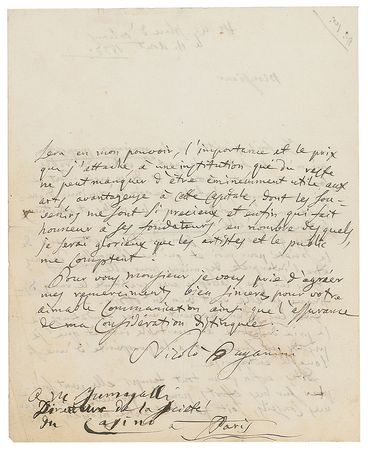 sera en mon pouvoir, l'importance et le prix
que j'attache à une institution qui du reste
ne peut manquer d'être éminemment utile aux
art, avantageuse à cette Capitale, dont les Sou-
venirs me sont si précieux et enfin qui fait
honneur à ses fondateurs, au nombre desquels,
je serai glorieux que les artistes et le public
me comptent!
Pour vous monsieur je vous prie d'agréer
mes remerciments bien sincères pour votre
aimable Communication ainsi que l'assurance
de ma Considération distinguée
Nicolò Paganini
A Mr Fumagalli
Directeur de la Société
du Casino à Paris